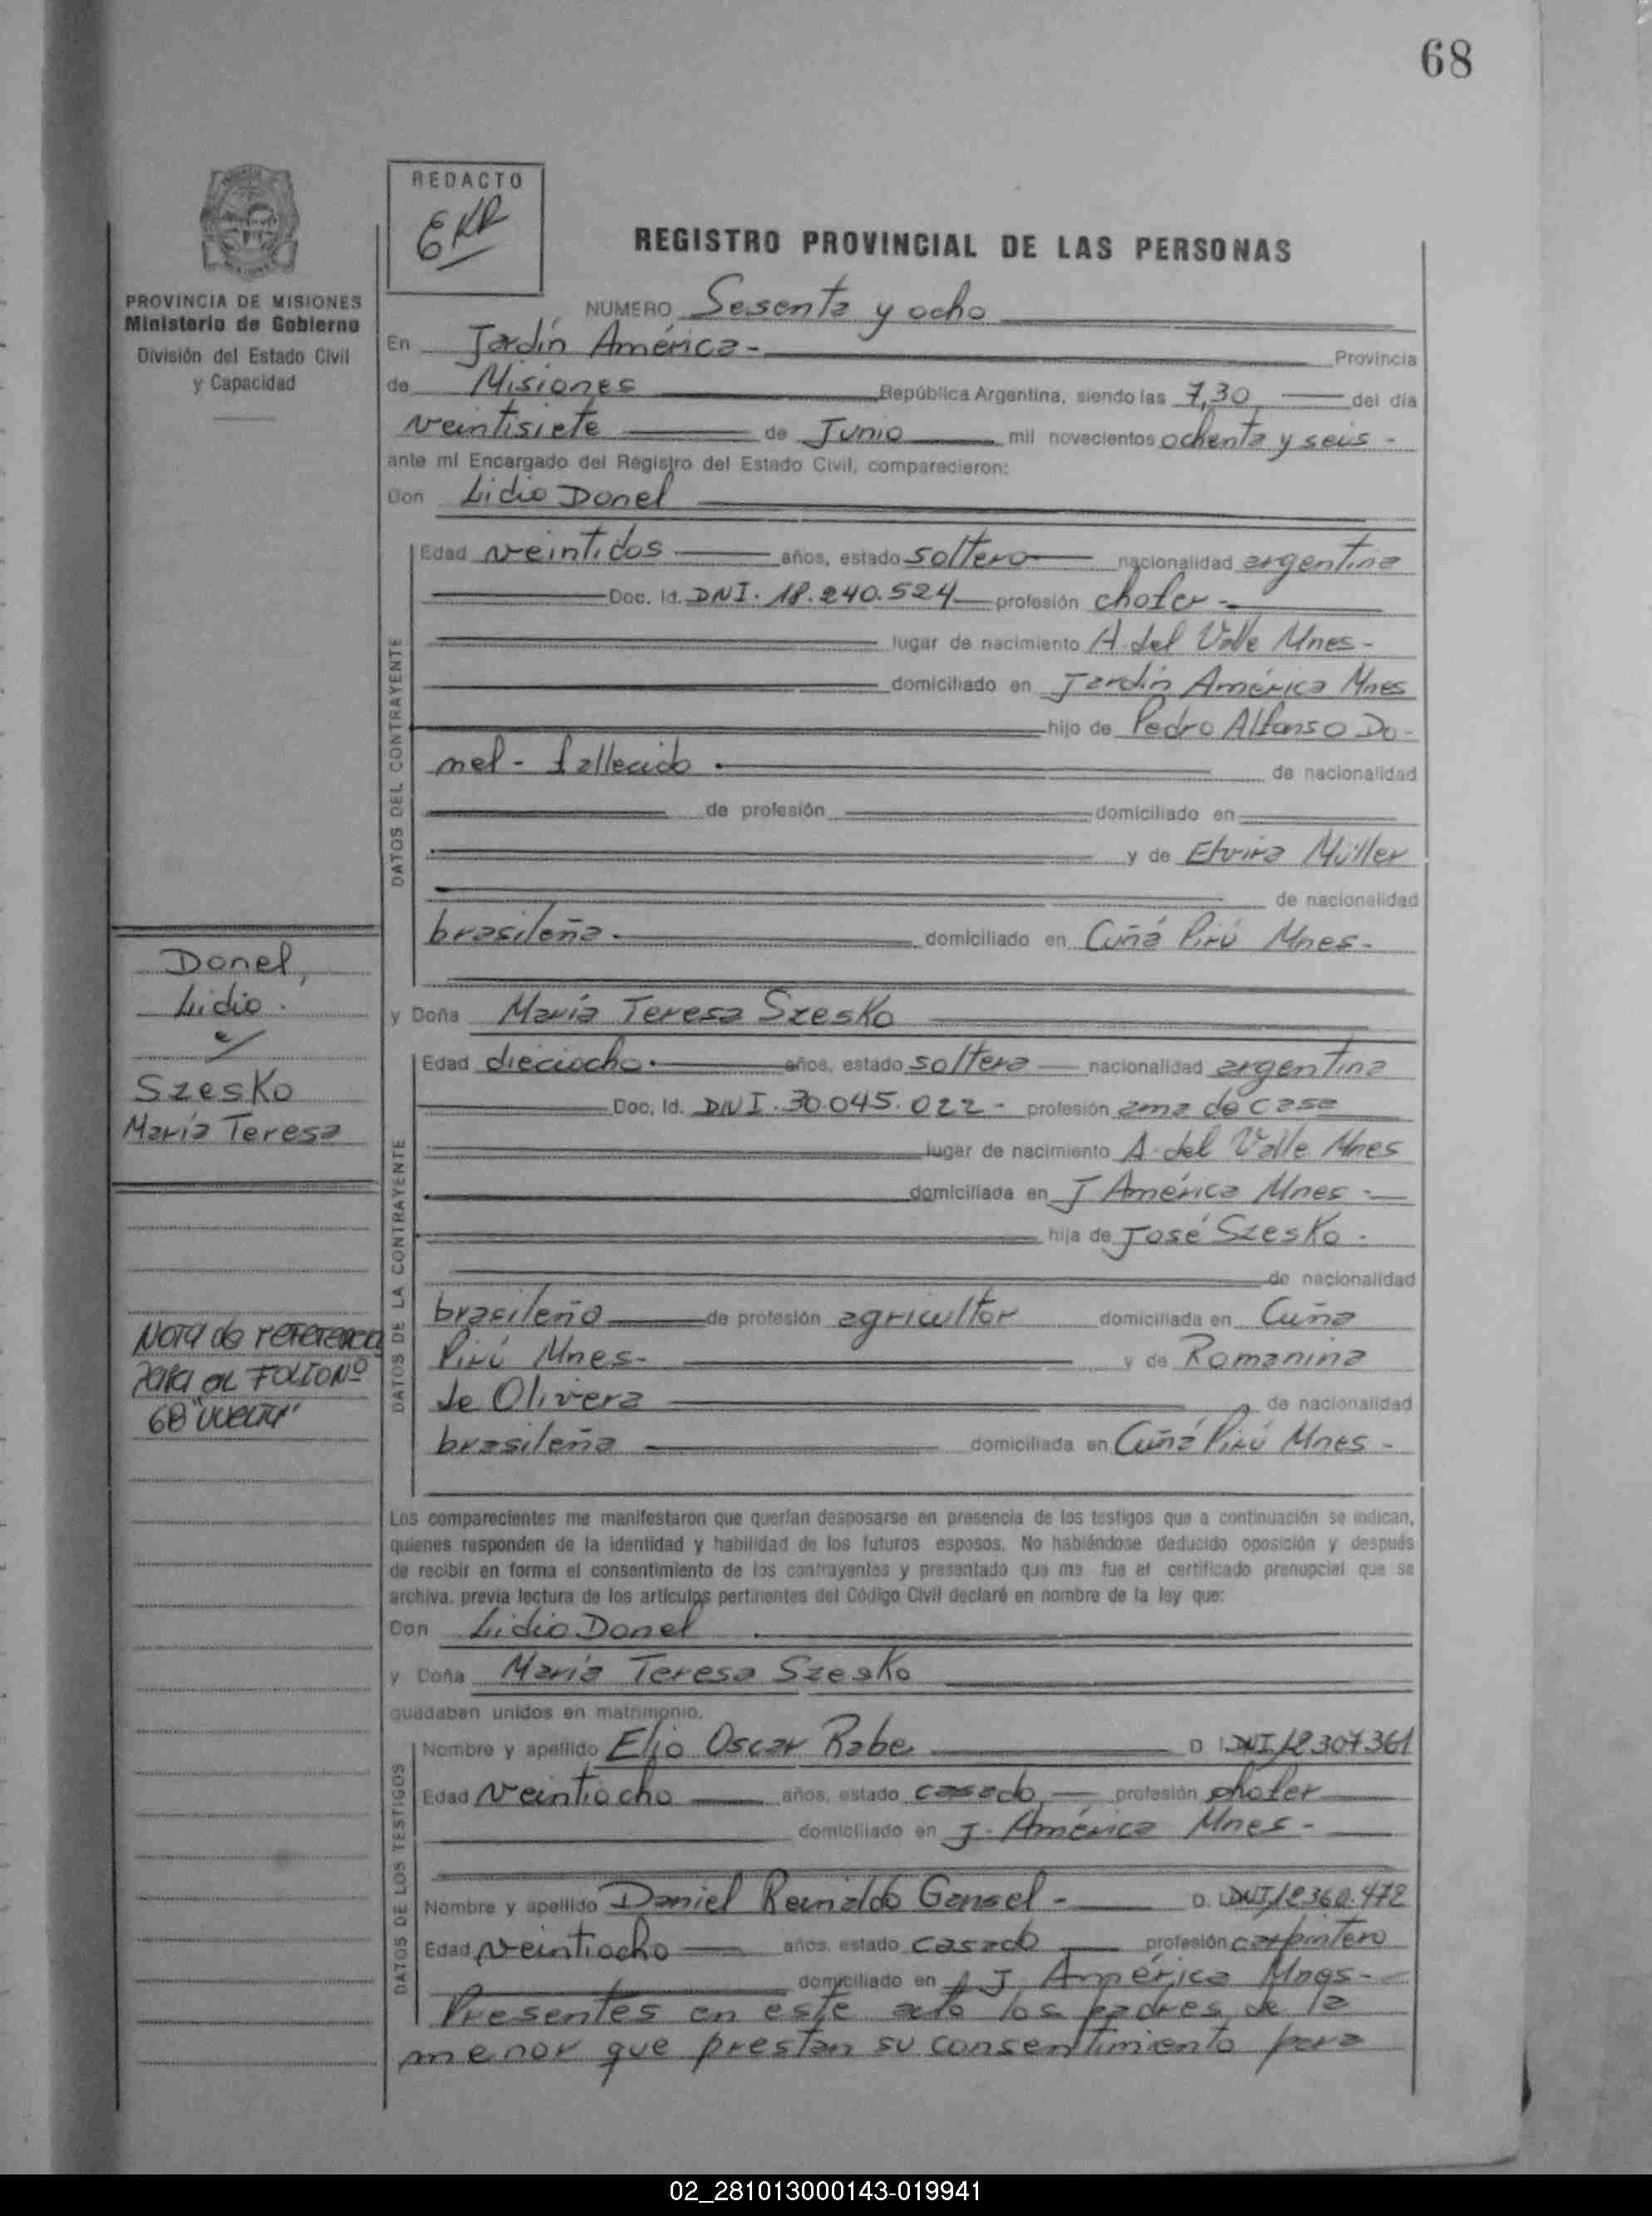 68
REDACTO
EKR
REGISTRO PROVINCIAL DE LAS PERSONAS
PROVINCIA DE MISIONES
Ministerio de Gobierno
División del Estado Civil
y Capacidad
NUMERO Sesenta y ocho
En Jardín América - Provincia
de Misiones República Argentina, siendo las 7,30 del día
veintisiete de Junio mil novecientos ochenta y seis -
ante mí Encargado del Registro del Estado Civil, comparecieron:
Don Lidio Donel
DATOS DEL CONTRAYENTE
Edad veintidos años, estado soltero nacionalidad argentina
Doc. Id. DNI. 18.240.524 profesión chofer -
lugar de nacimiento A. del Valle Mnes -
domiciliado en Jardín América Mnes
hijo de Pedro Alfonso Do-
nel - fallecido . de nacionalidad
de profesión domiciliado en
y de Elvira Müller
de nacionalidad
brasileña . domiciliado en Cuñá Pirú Mnes -
Donel,
Lidio .
c/
Szesko
María Teresa
y Doña María Teresa Szesko
DATOS DE LA CONTRAYENTE
Edad dieciocho . años, estado soltera nacionalidad argentina
Doc. Id. DNI. 30.045.022 - profesión ama de casa
lugar de nacimiento A. del Valle Mnes
domiciliada en J América Mnes -
hija de José Szesko .
de nacionalidad
brasileño de profesión agricultor domiciliada en Cuña
Pirú Mnes - y de Romanina
de Olivera de nacionalidad
brasileña domiciliada en Cuñá Pirú Mnes -
Nota de referencia
para el FOLIO Nº
68 "vuelta"
Los comparecientes me manifestaron que querían desposarse en presencia de los testigos que a continuación se indican,
quienes responden de la identidad y habilidad de los futuros esposos. No habiéndose deducido oposición y después
de recibir en forma el consentimiento de los contrayentes y presentado que me fue el certificado prenupcial que se
archiva. previa lectura de los artículos pertinentes del Código Civil declaré en nombre de la ley que:
Don Lidio Donel .
y Doña María Teresa Szesko
quedaban unidos en matrimonio.
DATOS DE LOS TESTIGOS
Nombre y apellido Elio Oscar Rabe D. I. DNI 12307361
Edad veintiocho años, estado casado profesión chofer
domiciliado en J. América Mnes -
Nombre y apellido Daniel Reinaldo Gansel - D. I. DNI 12360.472
Edad veintiocho años, estado casado profesión carpintero
domiciliado en J América Mnes -
Presentes en este acto los padres de la
menor que prestan su consentimiento para
02_281013000143-019941